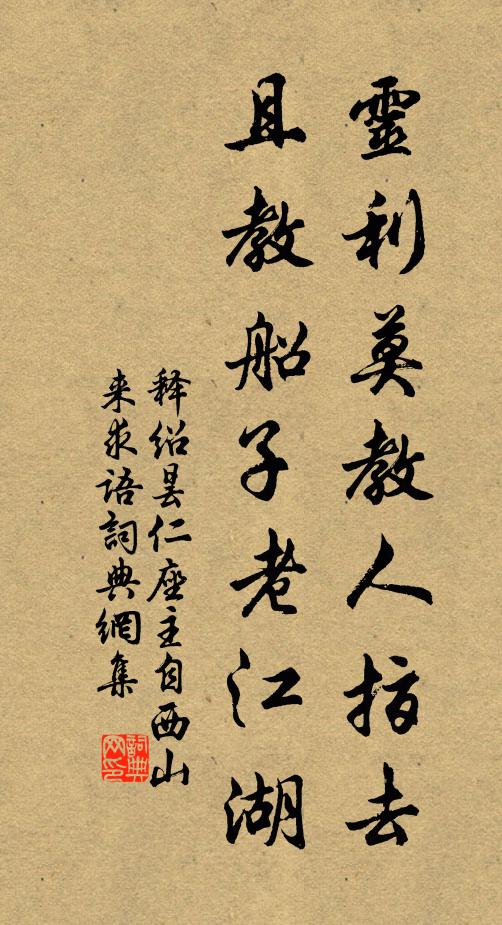 靈利莫教人指去
且教船子老江湖
释绍昙仁座主自西山
来求语詞典網集
詞典网印